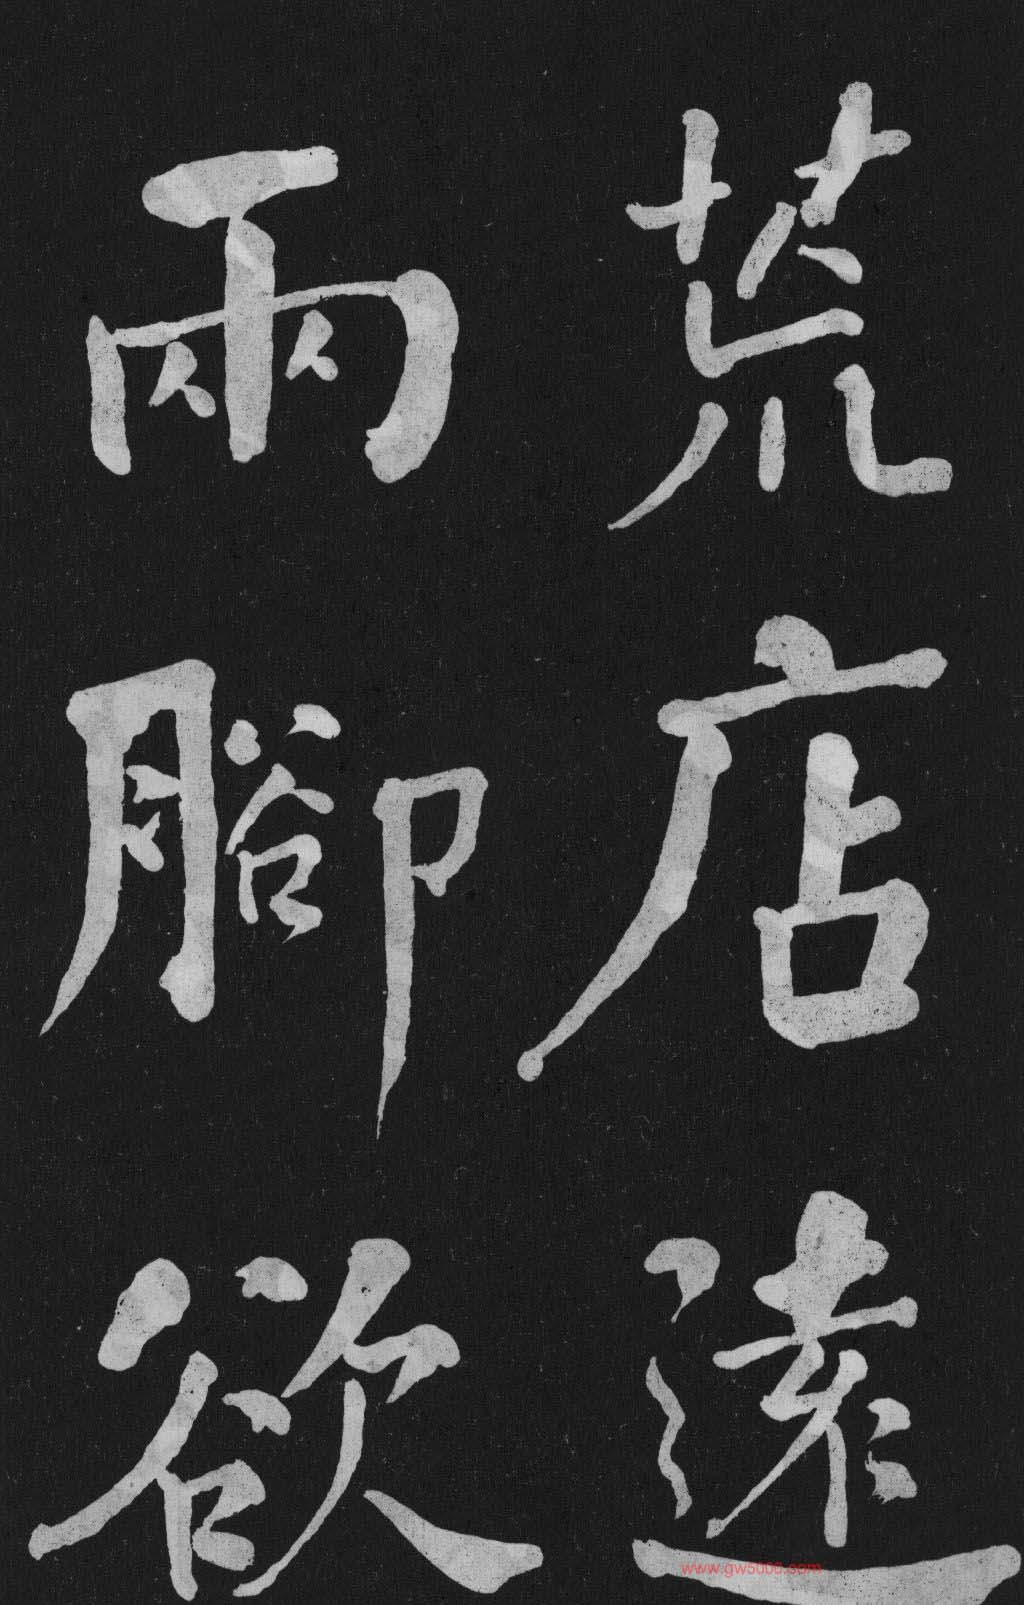 荒店遠
雨腳欲
www.gw5000.com